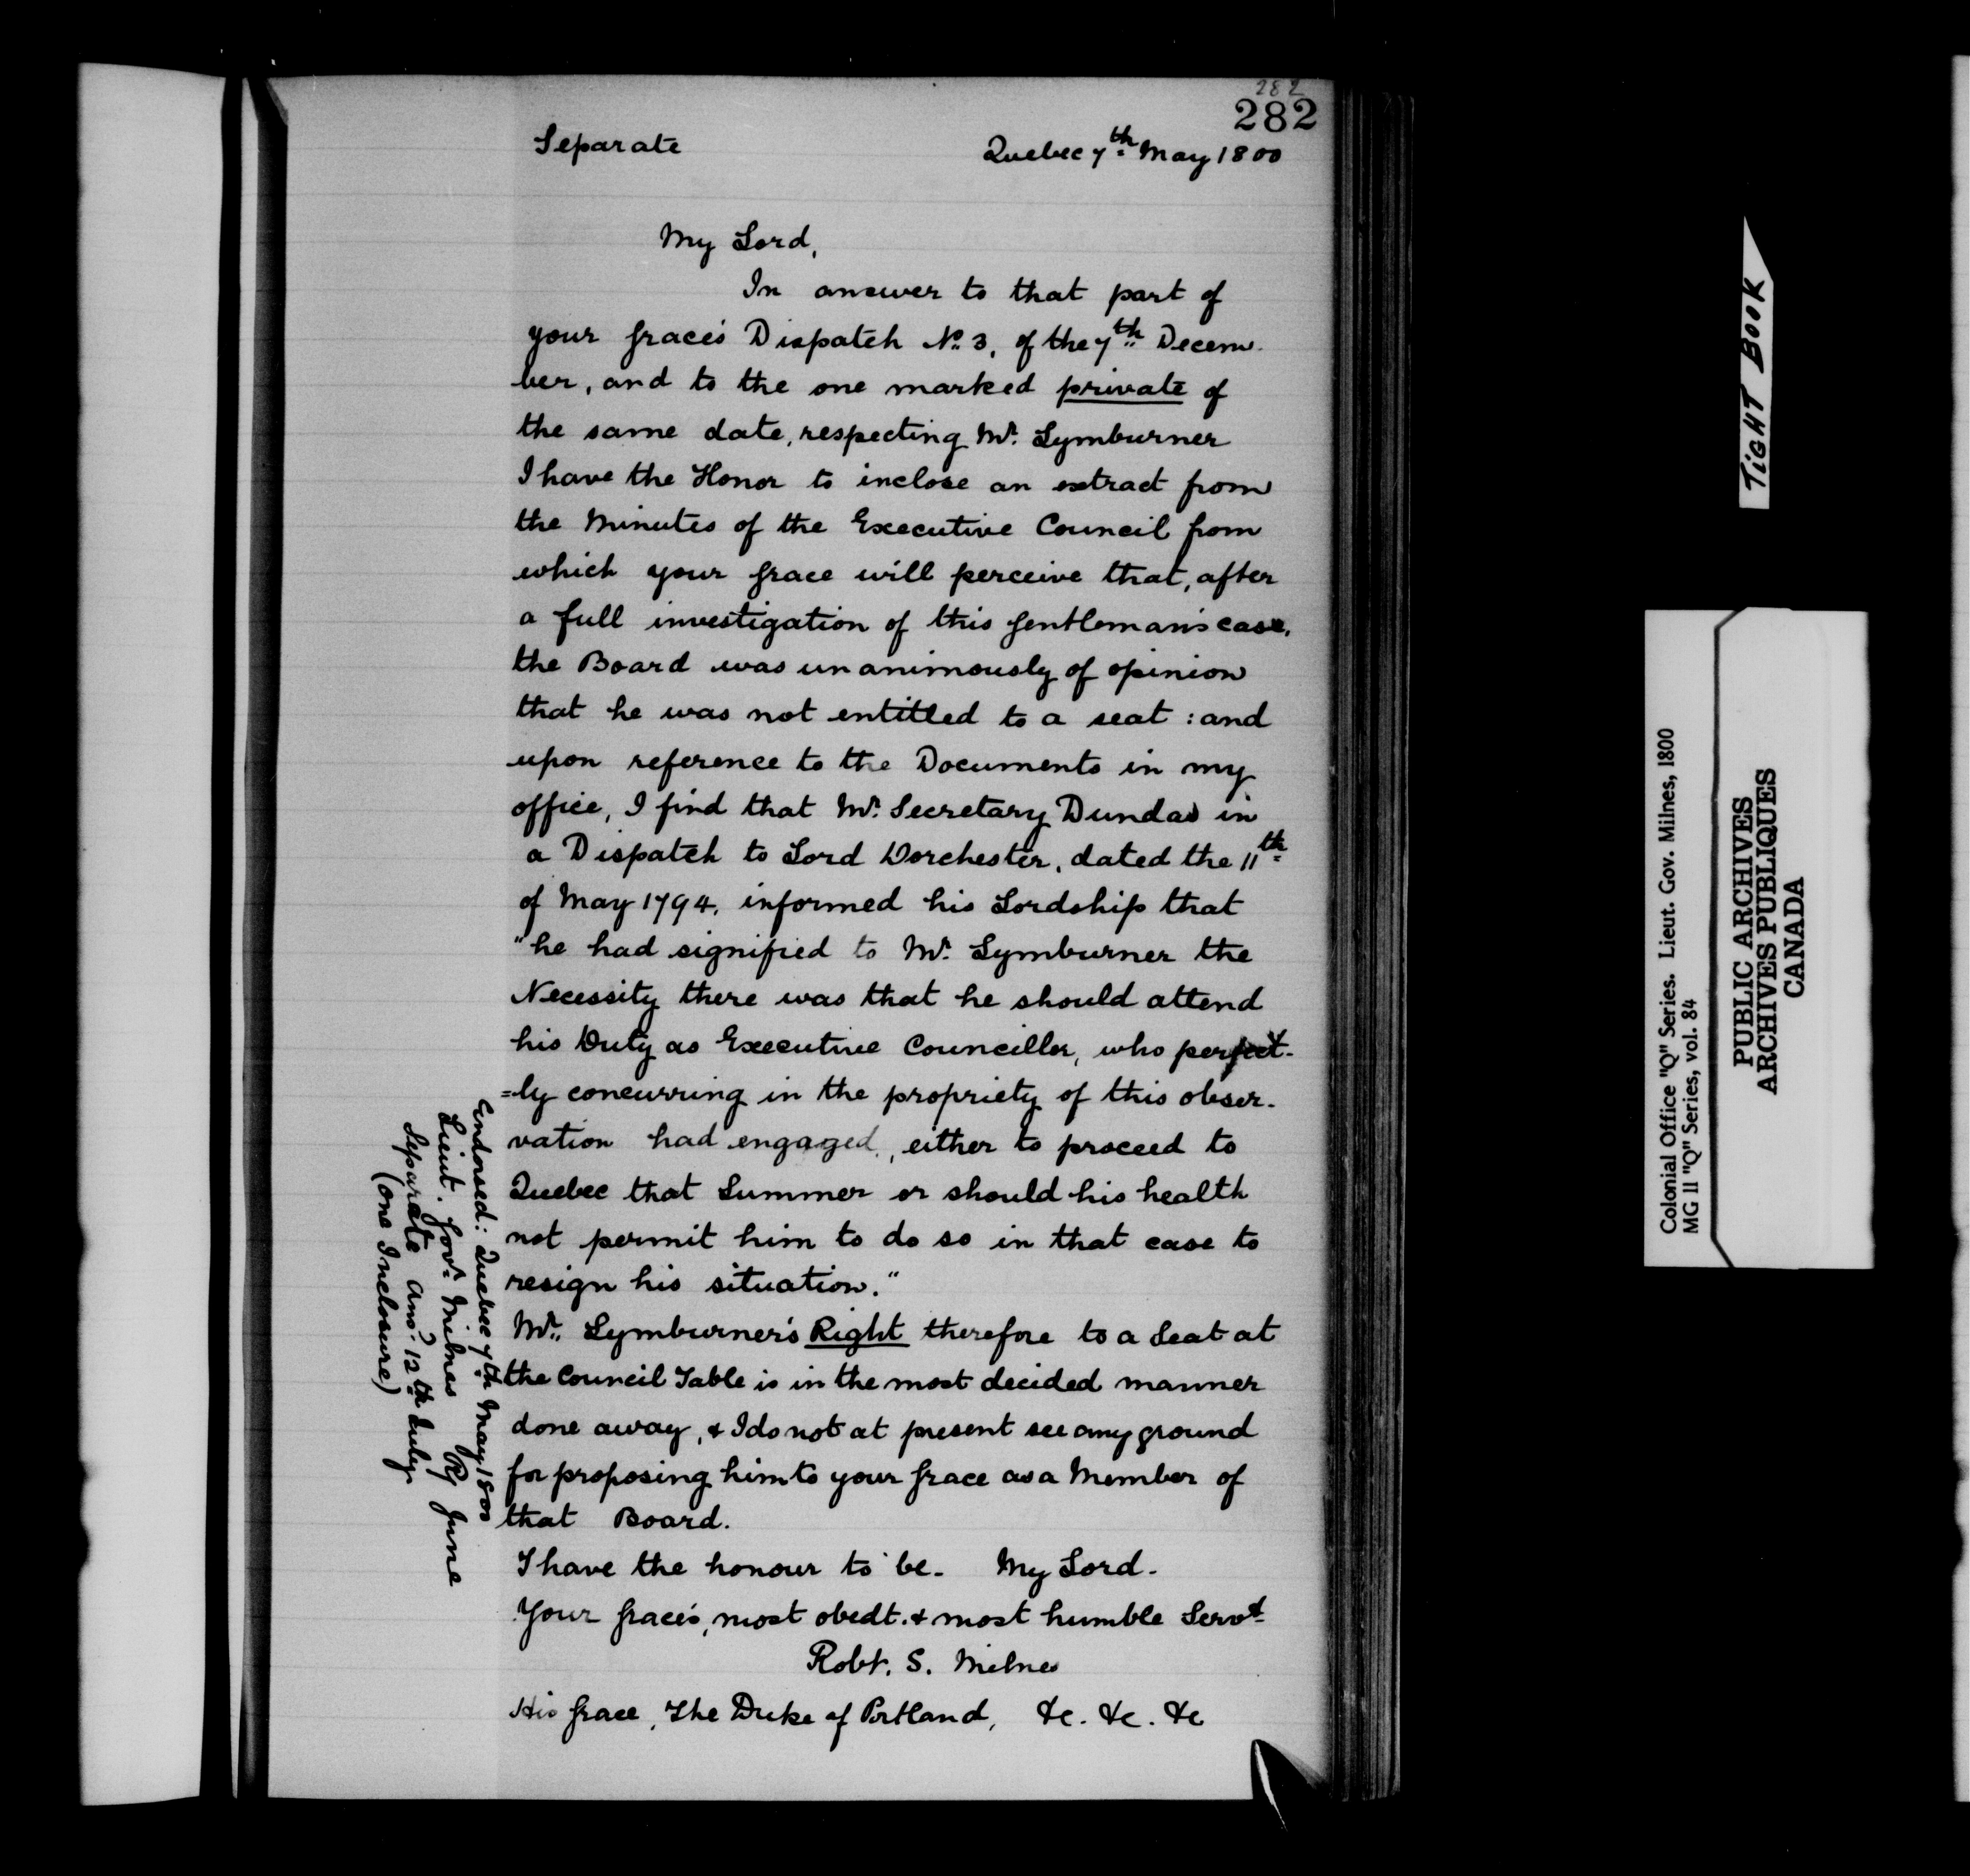 282
282
Separate
Quebec 7th May 1800
My Lord,
In answer to that part of
your Grace's Dispatch No. 3, of the 7th Decem-
ber, and to the one marked private of
the same date, respecting Mr. Lymburner
I have the Honor to inclose an extract from
the Minutes of the Executive Council from
which your Grace will perceive that, after
a full investigation of this Gentleman's case,
the Board was unanimously of opinion
that he was not entitled to a seat : and
upon reference to the Documents in my
office, I find that Mr. Secretary Dundas in
a Dispatch to Lord Dorchester, dated the 11th
of May 1794, informed his Lordship that
"he had signified to Mr. Lymburner the
Necessity there was that he should attend
his Duty as Executive Councillor, who perfect-
=ly concurring in the propriety of this obser-
vation had engaged, either to proceed to
Quebec that Summer or should his health
not permit him to do so in that case to
resign his situation."
Mr. Lymburner's Right therefore to a Seat at
the Council Table is in the most decided manner
done away, & I do not at present see any ground
for proposing him to your Grace as a Member of
that Board.
I have the honour to be. My Lord.
Your Grace's, most obedt. & most humble Servt.
Robt. S. Milnes
His Grace, The Duke of Portland, &c. &c. &c
Endorsed: Quebec 7th May 1800
Lieut. Govr. Milnes Rd June
Separate Ansd. 12th July
(one Inclosure)
TIGHT BOOK
Colonial Office "Q" Series. Lieut. Gov. Milnes, 1800
MG 11 "Q" Series, vol. 84
PUBLIC ARCHIVES
ARCHIVES PUBLIQUES
CANADA